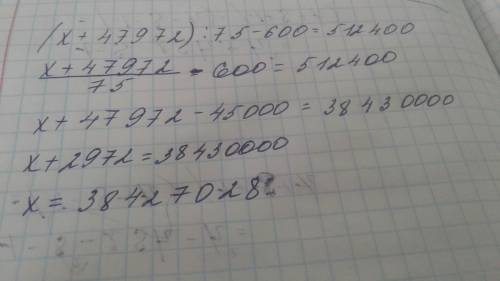 (x + 47972) : 75 - 600 = 512400
x + 47972 / 75 - 600 = 512400
x + 47972 - 45000 = 38430000
x + 2972 = 38430000
x = 38427028